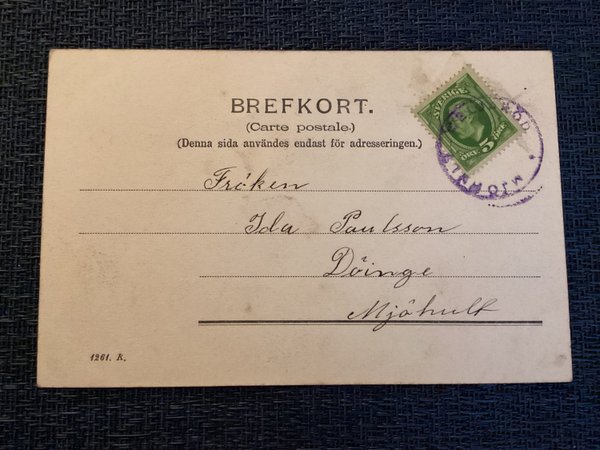 BREFKORT.
(Carte postale.)
(Denna sida användes endast för adresseringen.)
SVERIGE
5 ÖRE
Fröken
Ida Paulsson
Döinge
Mjöhult
1261. K.